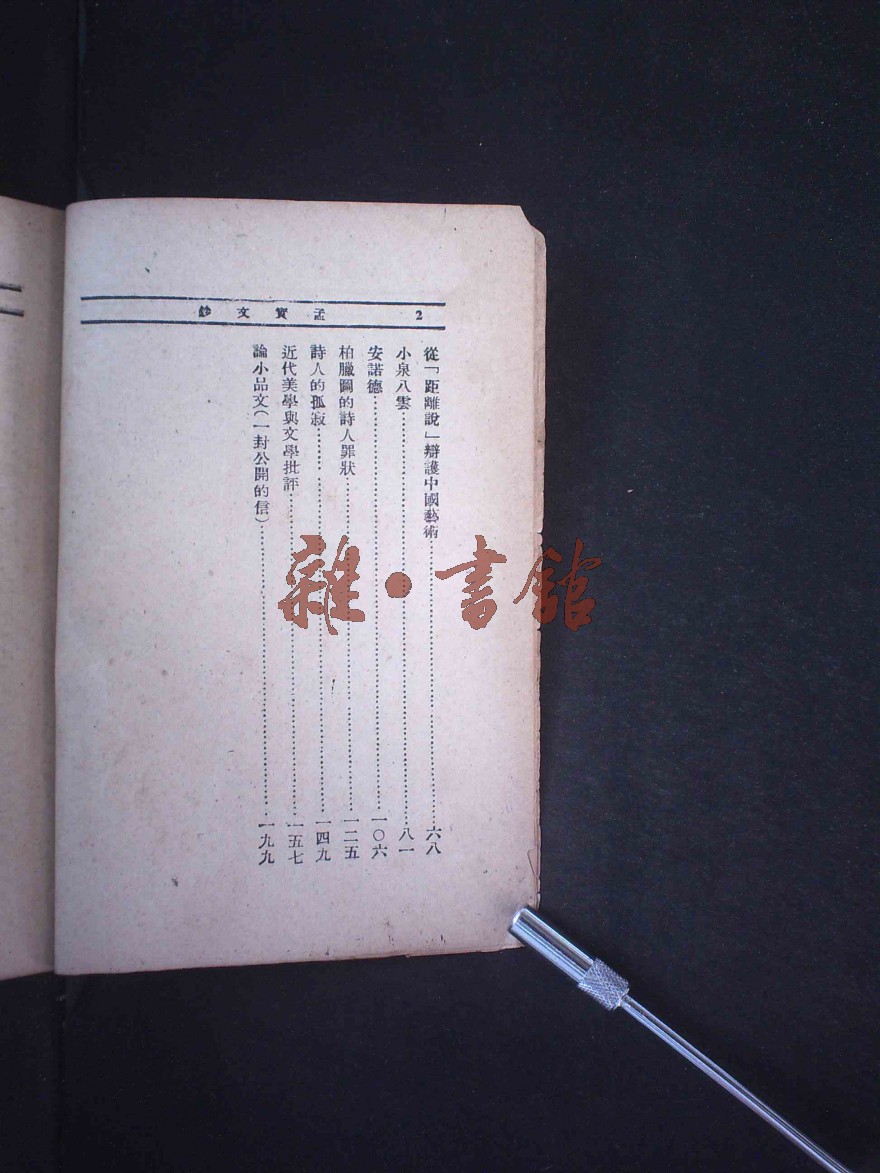 孟實文鈔 2
從「距離說」辯護中國藝術……六八
小泉八雲……八一
安諾德……一〇六
柏臘圖的詩人罪狀……一二五
詩人的孤寂……一四九
近代美學與文學批評……一五七
論小品文(一封公開的信)……一九九
雜·書館